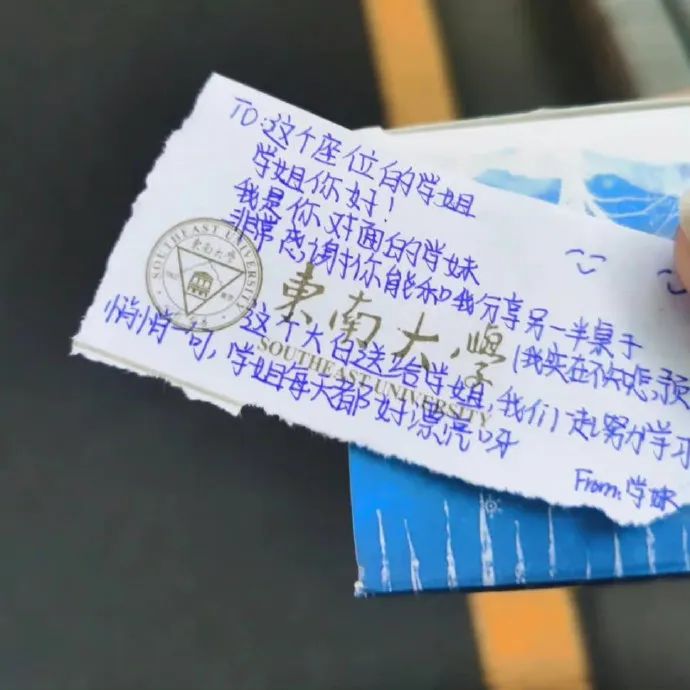 TO:这个座位的学姐
学姐你好!
我是你对面的学妹
非常感谢你能和我分享另一半桌子
(我实在不
这个大白送给学姐,我们一起努力学习
悄悄一句,学姐每天都好漂亮呀
From:学妹
SOUTHEAST UNIVERSITY
東南大學
東南大學
SOUTHEAST UNIVERSITY